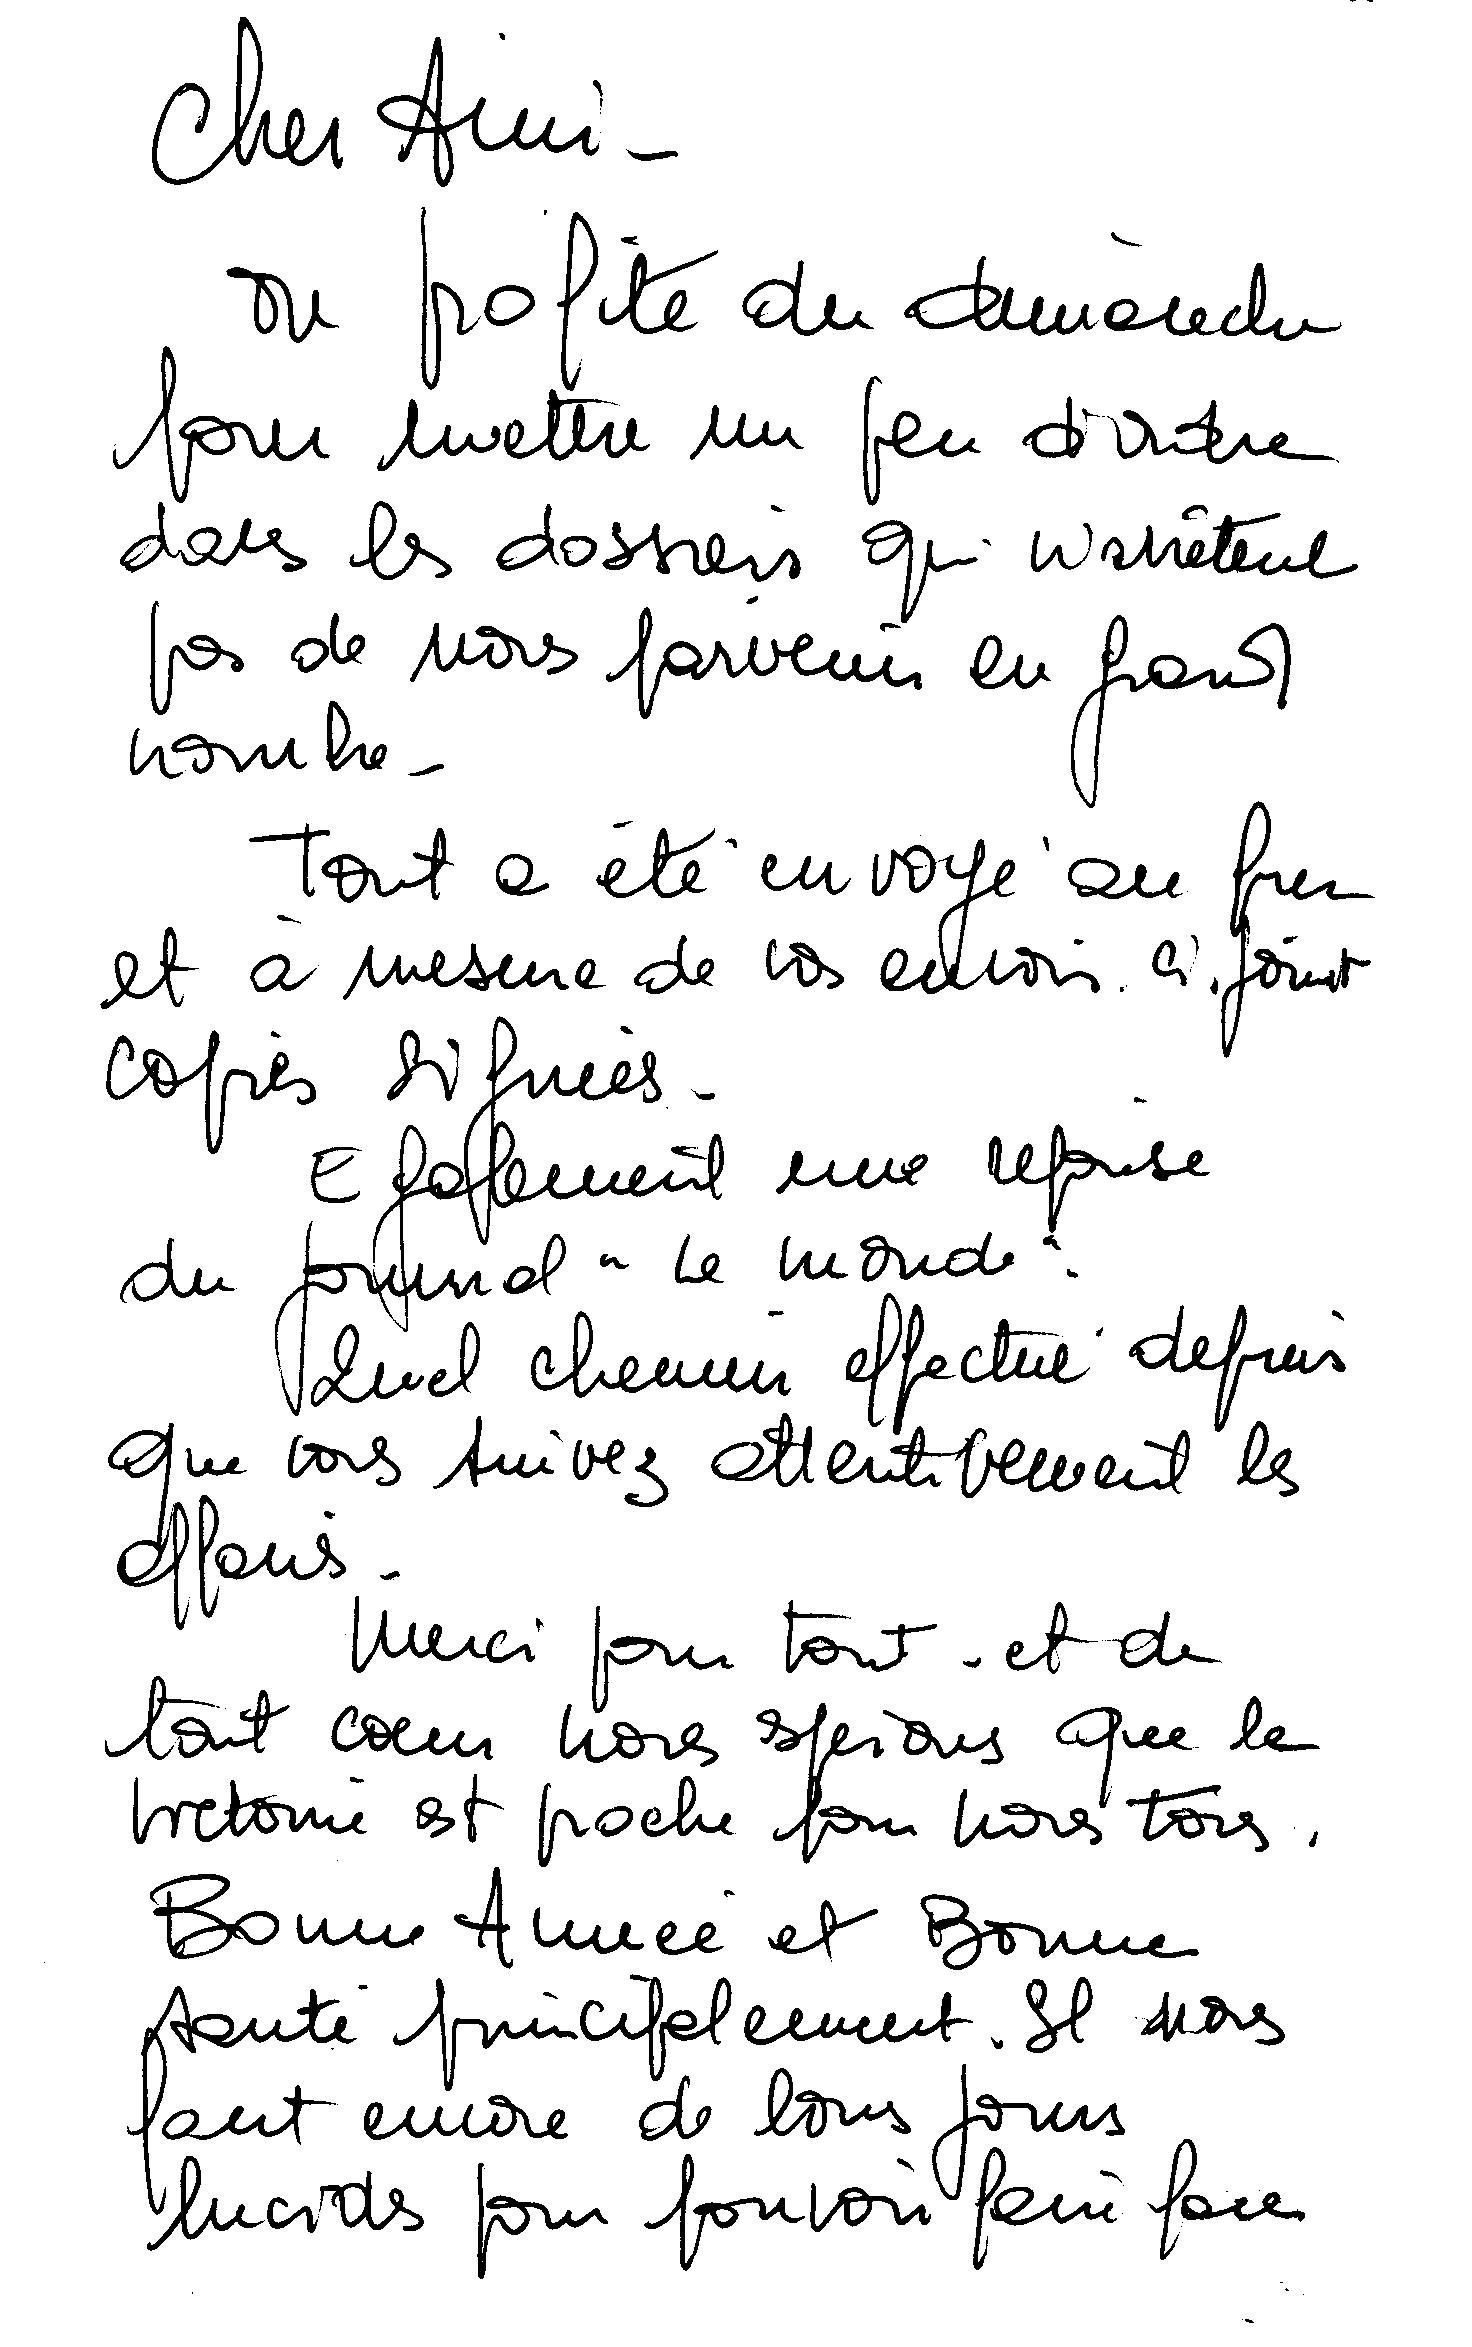 Cher Ami -
on profite du dimanche
pour mettre un peu d'ordre
dans les dossiers qui n'arrêtent
pas de nous parvenir en grand
nombre -
Tout a été envoyé au fur
et à mesure de vos envois. Ci. joint
copies signées -
Egalement une reponse
du journal "Le monde".
Quel chemin effectué depuis
que vous suivez attentivement les
affaires -
Merci pour tout - et de
tout coeur nous espérons que la
victoire est proche pour nous tous.
Bonne Année et Bonne
santé principalement. Il nous
faut encore de longs jours
lucides pour pouvoir faire face